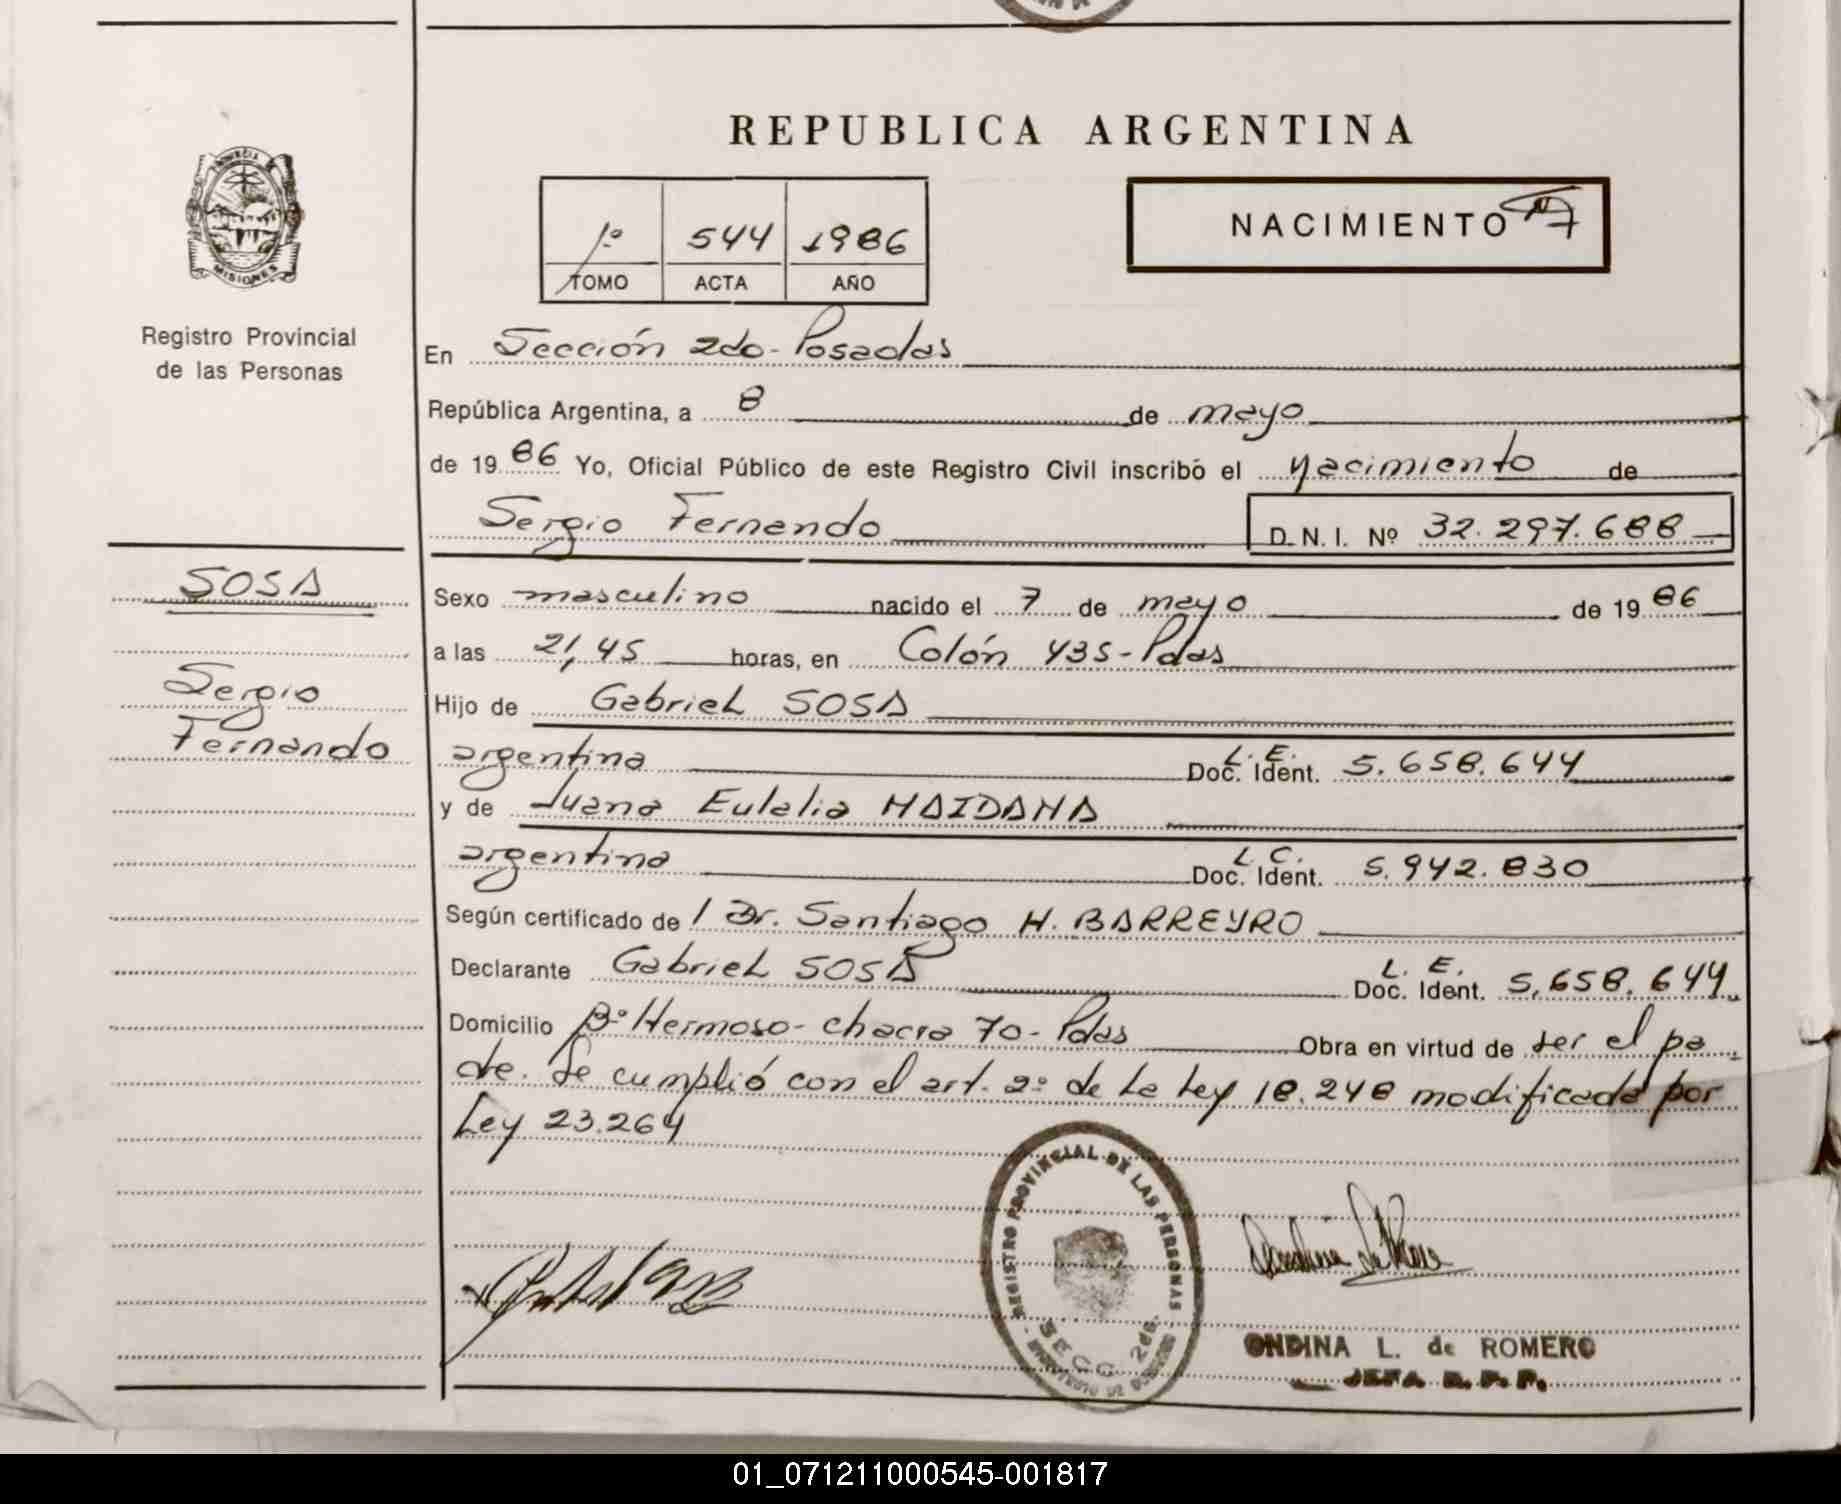 REPUBLICA ARGENTINA
PROVINCIA DE
MISIONES
Registro Provincial
de las Personas
1º 544 1986
TOMO ACTA AÑO
NACIMIENTO
En Sección 2do- Posadas
República Argentina, a 8 de mayo
de 1986 Yo, Oficial Público de este Registro Civil inscribó el Nacimiento de
Sergio Fernando D.N.I. Nº 32.297.688
SOSA
Sergio
Fernando
Sexo masculino nacido el 7 de mayo de 1986
a las 21,45 horas, en Colón 435-Pdas
Hijo de Gabriel SOSA
argentina L.E. Doc. Ident. 5.658.644
y de Juana Eulalia MAIDANA
argentina L.C. Doc. Ident. 5.942.830
Según certificado de l Dr. Santiago H. BARREYRO
Declarante Gabriel SOSA L.E. Doc. Ident. 5,658.644
Domicilio Bº Hermoso- chacra 70- Pdas Obra en virtud de ser el pa
dre. Se cumplió con el art. 2º de la Ley 18.248 modificada por
Ley 23.264
REGISTRO PROVINCIAL DE LAS PERSONAS
SECC. 2da.
ONDINA L. de ROMERO
JEFA R.P.P.
01_071211000545-001817